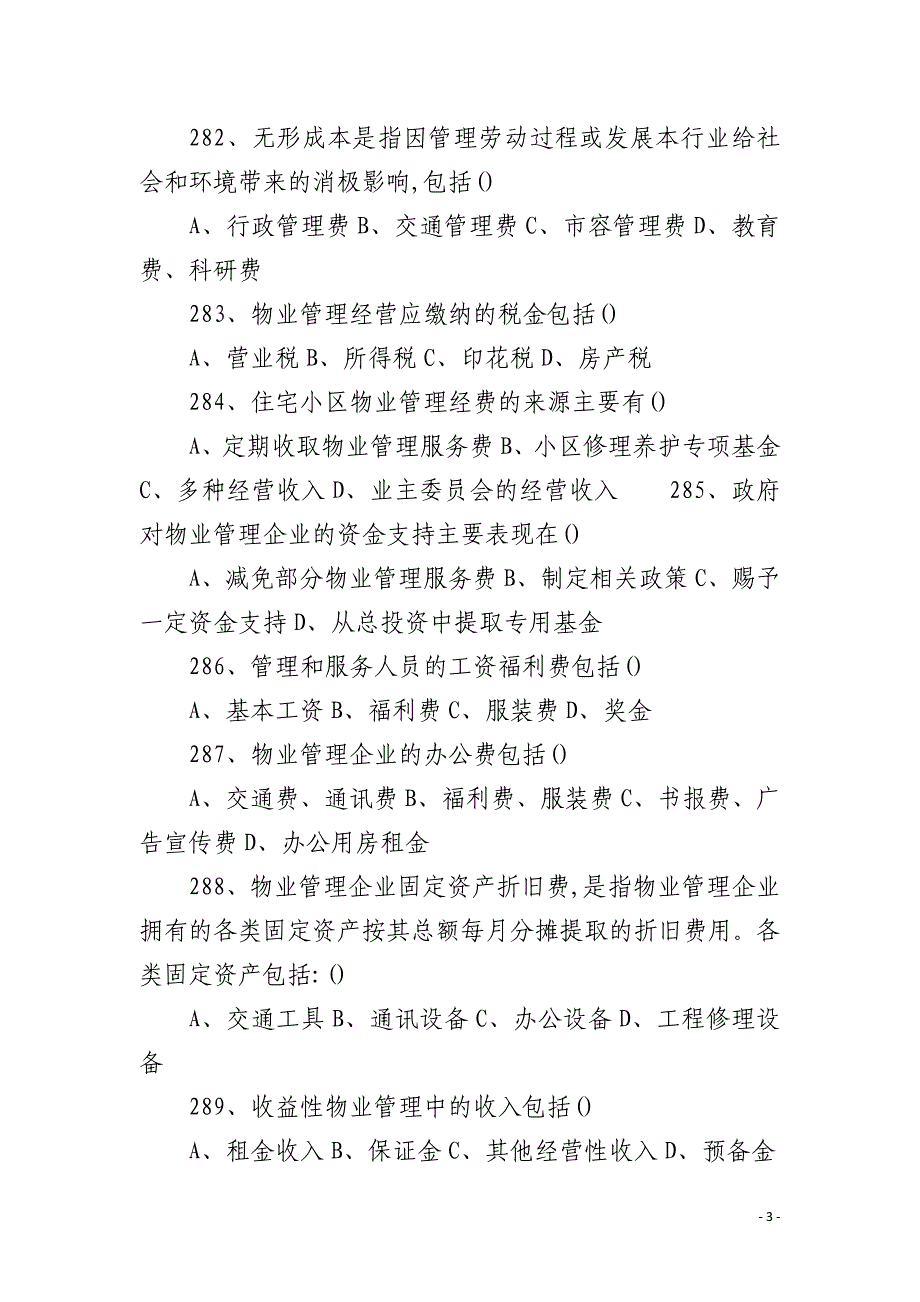 282、无形成本是指因管理劳动过程或发展本行业给社
会和环境带来的消极影响,包括()
A、行政管理费 B、交通管理费 C、市容管理费 D、教育
费、科研费
283、物业管理经营应缴纳的税金包括()
A、营业税 B、所得税 C、印花税 D、房产税
284、住宅小区物业管理经费的来源主要有()
A、定期收取物业管理服务费 B、小区修理养护专项基金
C、多种经营收入 D、业主委员会的经营收入 285、政府
对物业管理企业的资金支持主要表现在()
A、减免部分物业管理服务费 B、制定相关政策 C、赐予
一定资金支持 D、从总投资中提取专用基金
286、管理和服务人员的工资福利费包括()
A、基本工资 B、福利费 C、服装费 D、奖金
287、物业管理企业的办公费包括()
A、交通费、通讯费 B、福利费、服装费 C、书报费、广
告宣传费 D、办公用房租金
288、物业管理企业固定资产折旧费,是指物业管理企业
拥有的各类固定资产按其总额每月分摊提取的折旧费用。各
类固定资产包括: ()
A、交通工具 B、通讯设备 C、办公设备 D、工程修理设
备
289、收益性物业管理中的收入包括()
A、租金收入 B、保证金 C、其他经营性收入 D、预备金
- 3 -